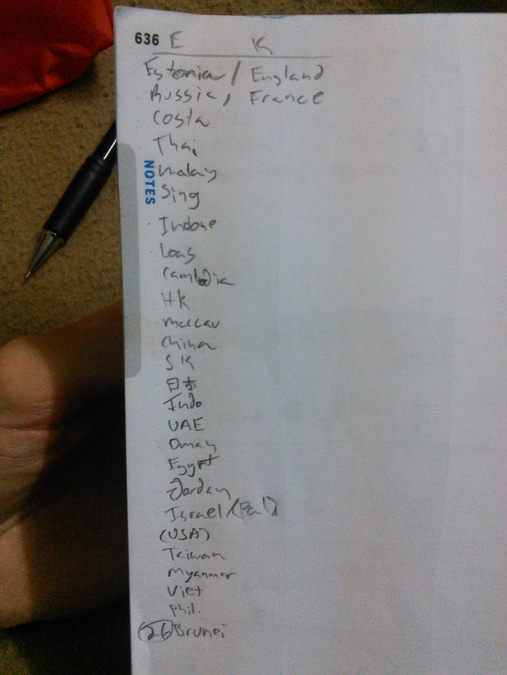 636 E K
Estonia / England
Russia, France
Costa
Thai
malay
NOTES
Sing
Indone
Laos
Cambodia
HK
maccau
China
SK
日本
Indo
UAE
Oman
Egypt
Jordan
Israel/(Pal)
(USA)
Taiwan
myanmar
Viet
Phil.
26 Brunei